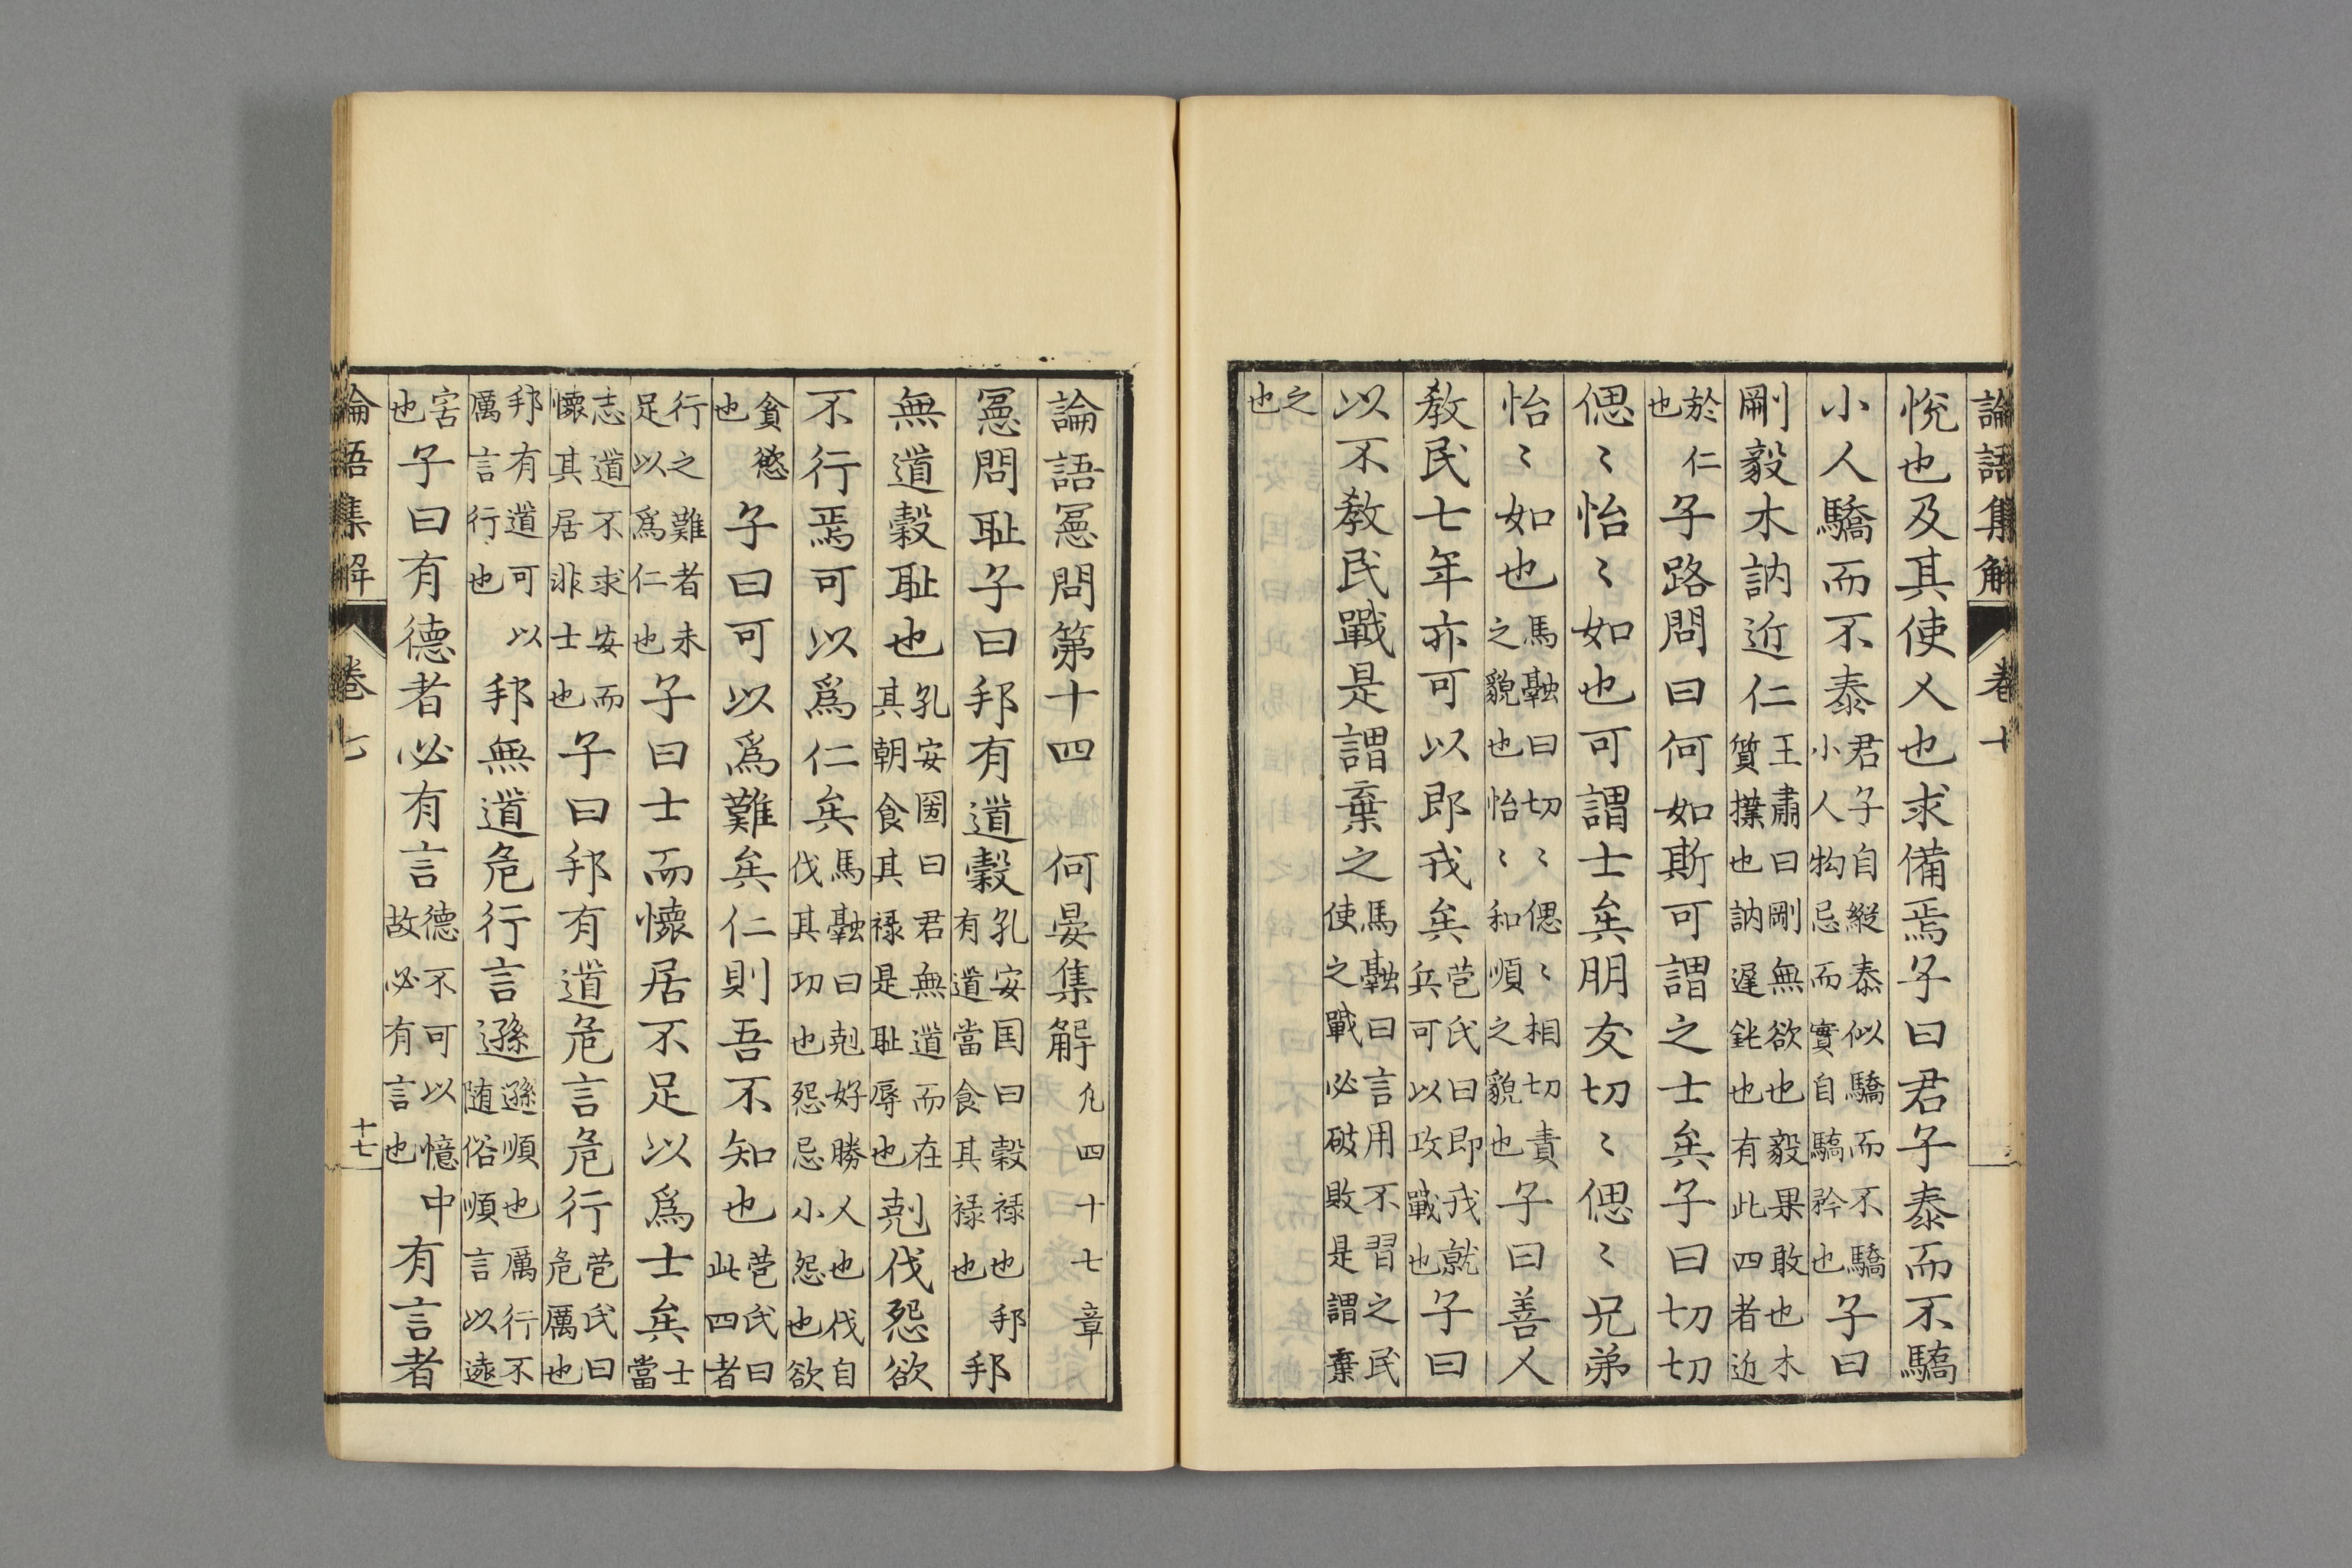 論語集解 卷七
悅也及其使人也求備焉子曰君子泰而不驕
小人驕而不泰君子自縱泰似驕而不驕小人拘忌而實自驕矜也子曰
剛毅木訥近仁王肅曰剛無欲也毅果敢也木質撲也訥遲鈍也有此四者近
於仁也子路問曰何如斯可謂之士矣子曰切切
偲〻怡〻如也可謂士矣朋友切〻偲〻兄弟
怡〻如也馬融曰切〻偲〻相切責之貌也怡〻和順之貌也子曰善人
敎民七年亦可以即戎矣苞氏曰即戎就兵可以攻戰也子曰
以不敎民戰是謂棄之馬融曰言用不習之民使之戰必破敗是謂棄
之也
論語憲問第十四 何晏集解凡四十七章
憲問耻子曰邦有道穀孔安国曰穀禄也邦有道當食其禄也邦
無道穀耻也孔安國曰君無道而在其朝食其禄是耻辱也剋伐怨欲
不行焉可以爲仁矣馬融曰剋好勝人也伐自伐其功也怨忌小怨也欲
貪慾也子曰可以爲難矣仁則吾不知也苞氏曰此四者
行之難者未足以爲仁也子曰士而懷居不足以爲士矣士當
志道不求安而懷其居非士也子曰邦有道危言危行苞氏曰危厲也
邦有道可以厲言行也邦無道危行言遜遜順也厲行不随俗順言以遠
害也子曰有德者必有言德不可以憶中故必有言也有言者
論語集解 卷七 十七